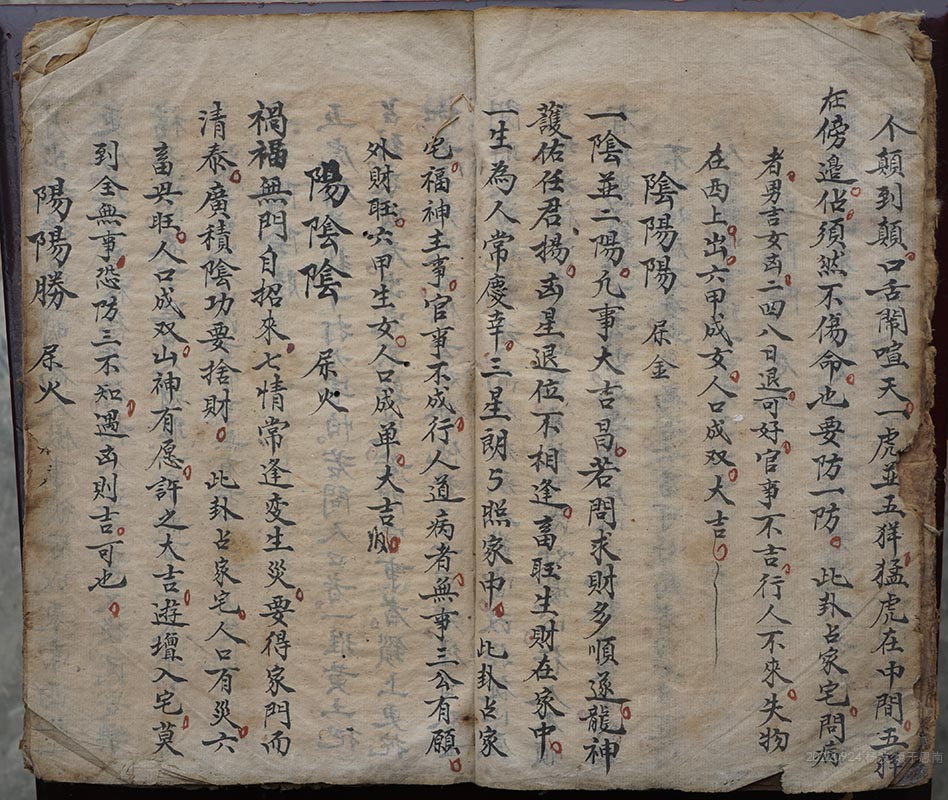 不顛到顛口舌鬧喧天一虎並五羊猛虎在中間五羊
在傍邉佔須然不傷命也要防一防 此卦占家宅問病
者男吉女凶二四八日退可好官事不吉行人不來失物
在西上出六甲成女人口成双大吉
陰陽陽 屎金
一陰並二陽凡事大吉昌若問求財多順遂龍神
護佑任君揚凶星退位不相逢畜旺生財在家中
一生為人常慶幸三星朗朗照家中 此卦占家
宅福神主事官事不成行人道病者無事三公有願
外財旺六甲生女人口成单大吉
陽陰陰 屎火
禍福無門自招來七情常逢变生災要得家門而
清泰廣積陰功要捨財 此卦占家宅人口有災六
畜興旺人口成双山神有愿許之大吉遊壇入宅莫
到全無事恐防三不知遇凶則吉可也
陽陽勝 屎火